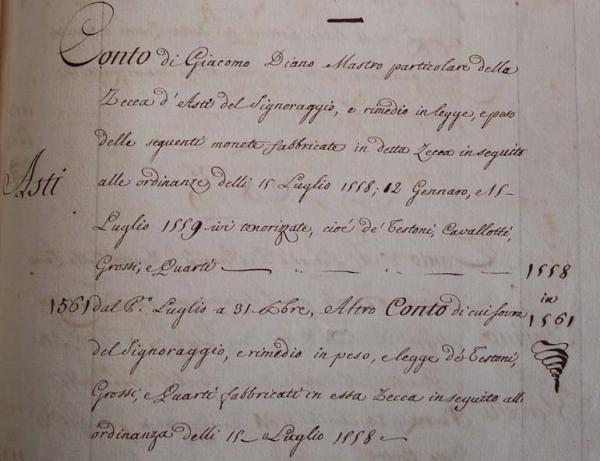 Conto di Giacomo Diano Mastro particolare della
Zecca d'Asti del Signoraggio, e rimedio in legge, e peso
delle seguenti monete fabbricate in detta Zecca in seguito
Asti
alle ordinanze delli 15 Luglio 1558; 12 Gennaro, e 15
Luglio 1559 ivi tenorizzate, cioè de' Testoni, Cavallotti,
Grossi, e Quarti — 1558
in
1561
1561 dal P.º Luglio a 31 Xbre, Altro Conto di cui sovra
del Signoraggio, e rimedio in peso, e legge de' Testoni,
Grossi, e Quarti fabbricati in essa Zecca in seguito all'
ordinanza delli 15 Luglio 1558